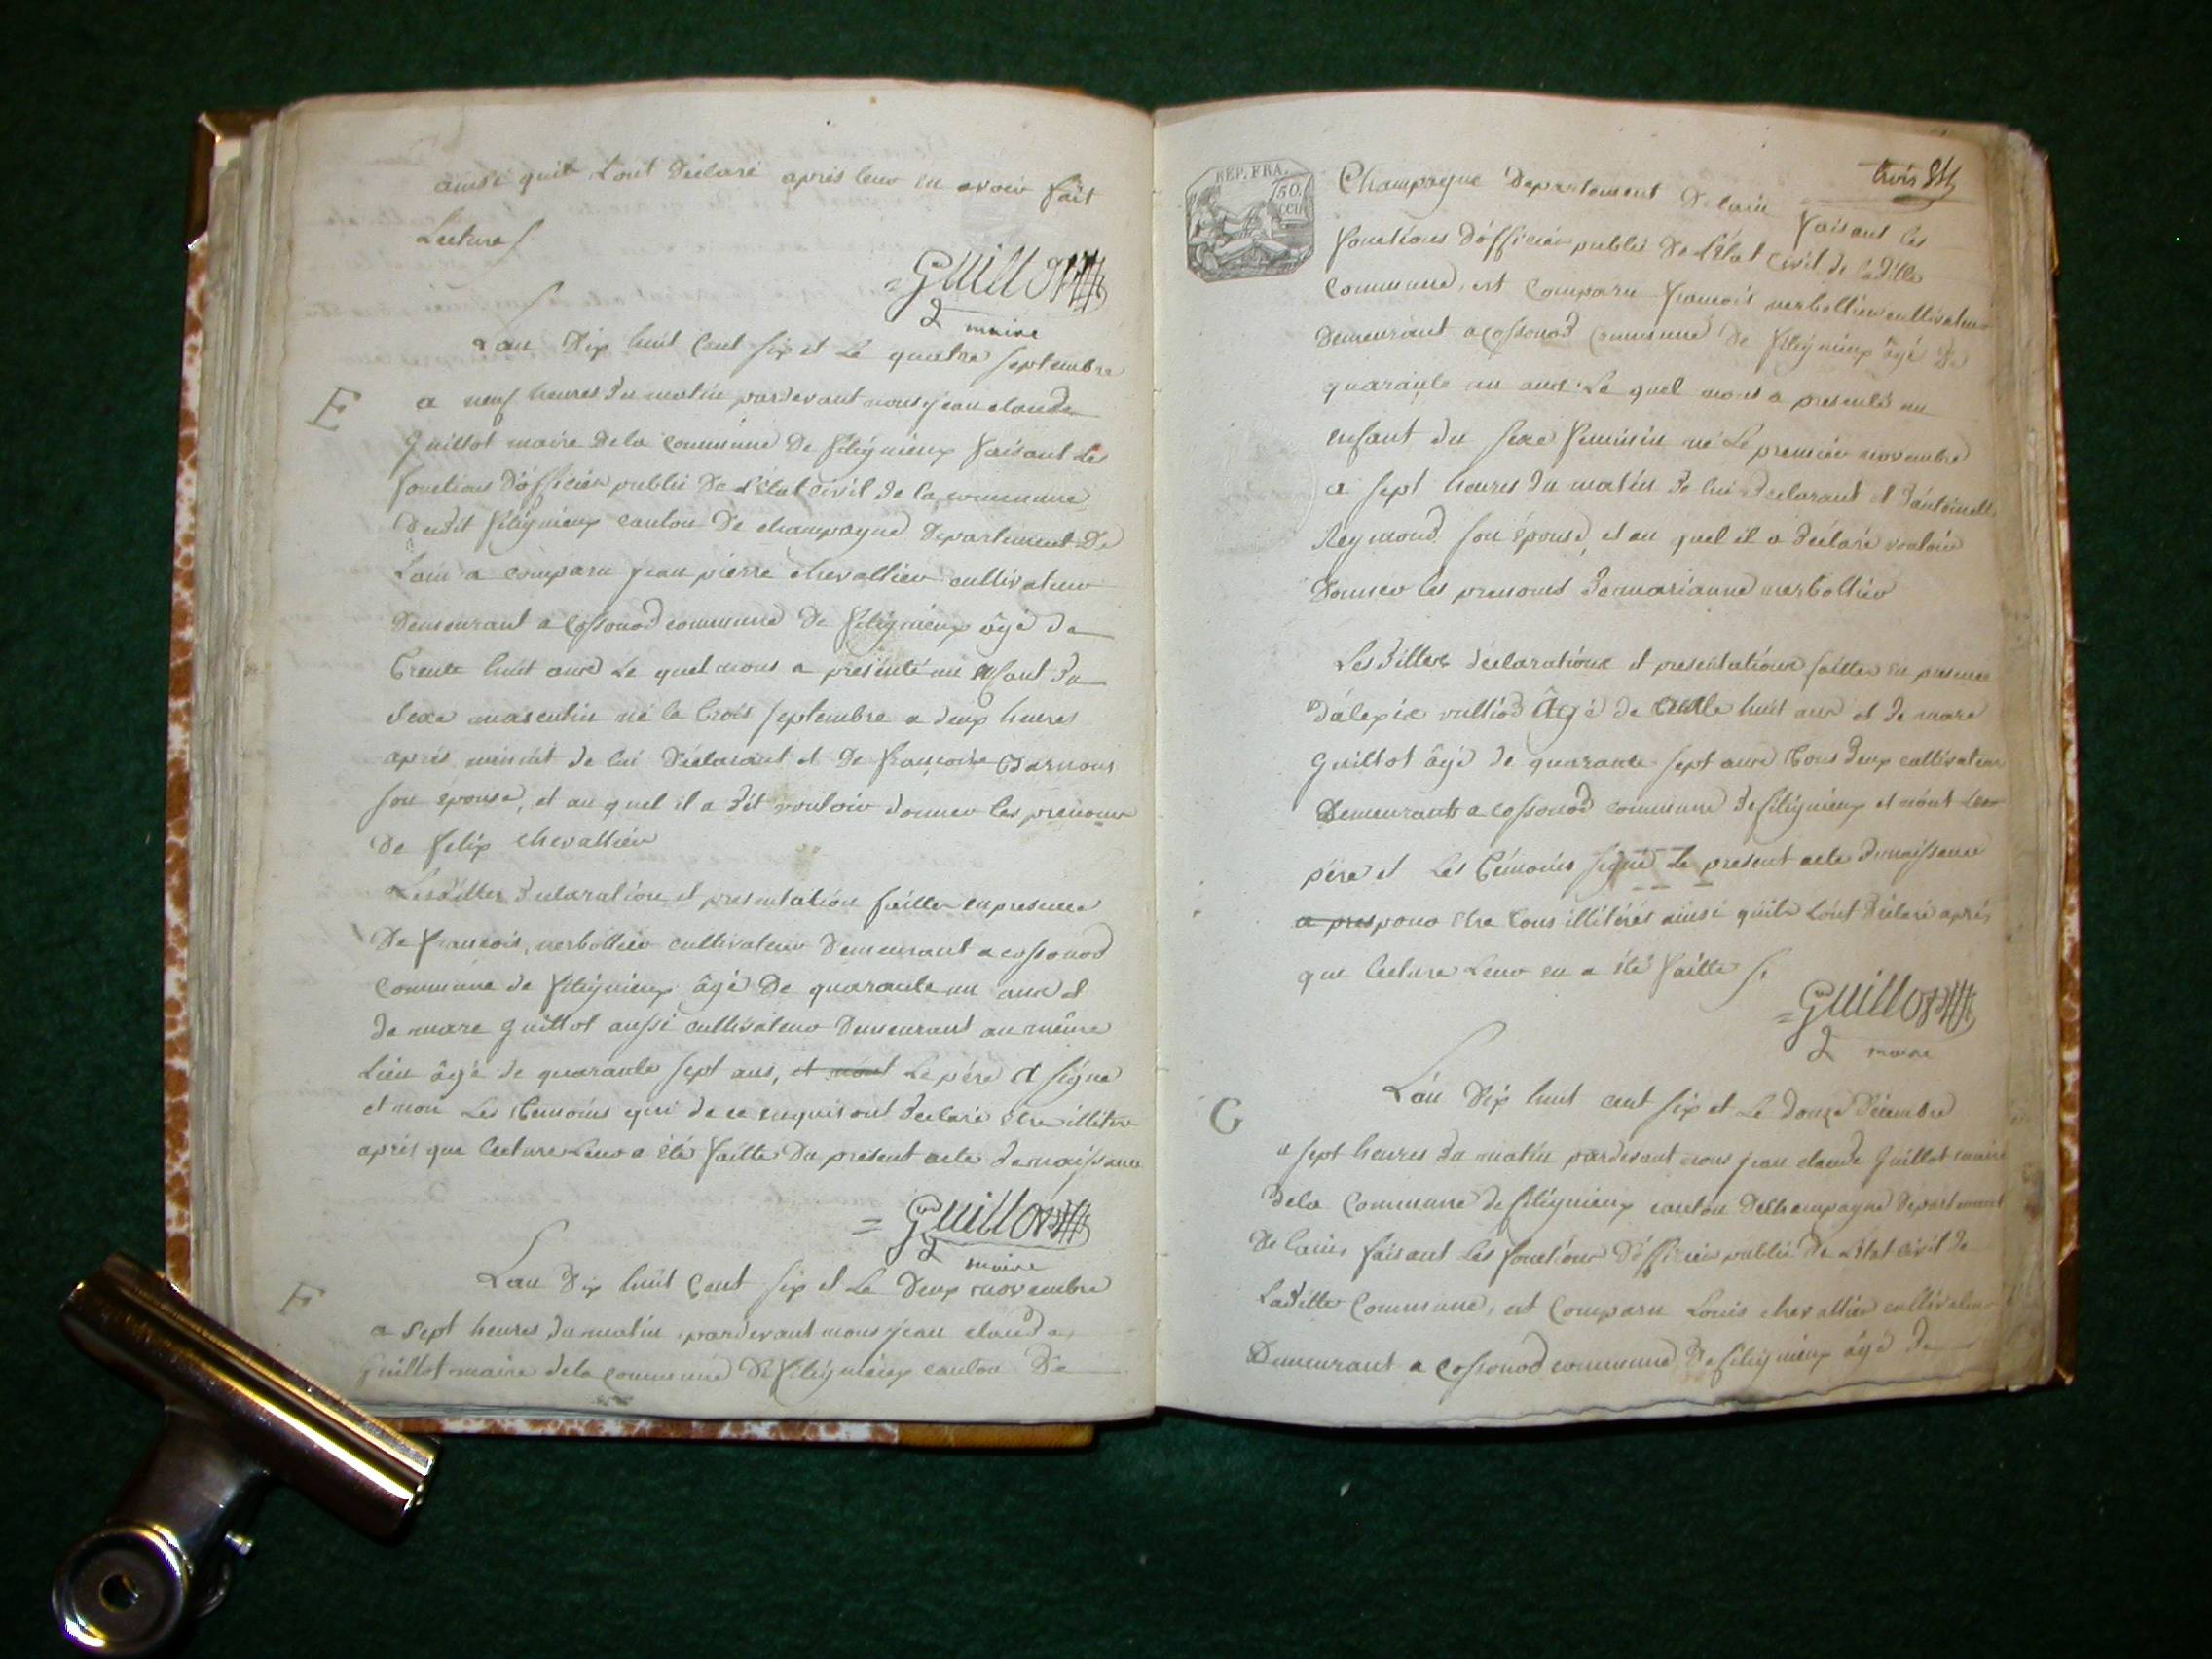 ainsi quil Lont Déclaré aprés leur en avoir fait
Lecture
Guillot
maire
Lan Dix huit Cent six et Le quatre septembre
E
a neuf heures du matin pardevant nous jean claude
Guillot maire dela Commune De fitignieux faisant Les
fonctions D'officier public De L'état civil de la commune
Dudit fitignieux canton De champagne Departement De
Lain a comparu jean pierre chevallier cultivateur
Demeurant a Cossonod commune De fitignieux âgé de
trente huit ans Le quel nous a presenté un enfant du
Sexe masculin né le trois septembre a deux heures
aprés minuit de lui Déclarant et De françoise
son epouse, et au quel il a dit vouloir donner les prenoms
De felix chevallier
Lesdittes declaration et presentation faittes en presence
De francois verbollier cultivateur Demeurant a cossonod
Commune de fitignieux âgé De quarante un ans et
de marc Guillot aussi cultivateur Demeurant au même
Lieu âgé de quarante sept ans, et n'ont Le pére et signe
et non Les témoins qui de ce enquis ont declaré être illitere
aprés que lecture Leur a été faitte Du présent acte de naissance
Guillot
maire
Lan Dix huit Cent six et Le Deux novembre
F
a sept heures du matin pardevant nous jean claude
Guillot maire dela Commune De fitignieux canton De
REP. FRA.
50
CEN
trois
Champagne Departement De lain faisant les
fonctions D'officier public De L'état civil de laditte
Commune, est Comparu francois verbollier cultivateur
Demeurant a Cossonod Commune De fitignieux âgé De
quarante un ans Le quel nous a presenté un
enfant du sexe feminin né Le premier novembre
a sept heures du matin de lui declarant et d'antoinette
Reymond son épouse, et au quel il a déclaré vouloir
Donner les prenoms de marianne verbollier
Les dittes déclarations et presentations faittes en presence
d'alexis vulliod Âgé de trente huit ans et de marc
Guillot âgé de quarante sept ans tous deux cultivateurs
Demeurants a cossonod commune de fitignieux et n'ont Les
pére et Les témoins signé Le present acte de naissance
a pres pour être tous illitérés ainsi quils Lont Déclaré aprés
que lecture Leur en a été faitte
Guillot
maire
G
Lan Dix huit cent six et Le Douze Décembre
a sept heures du matin pardevant nous jean claude Guillot maire
dela Commune de fitignieux canton De champagne Departement
De lain, faisant les fonctions D'officier public De L'état civil de
Laditte Commune, est Comparu Louis chevallier cultivateur
Demeurant a Cossonod commune De fitignieux âgé de